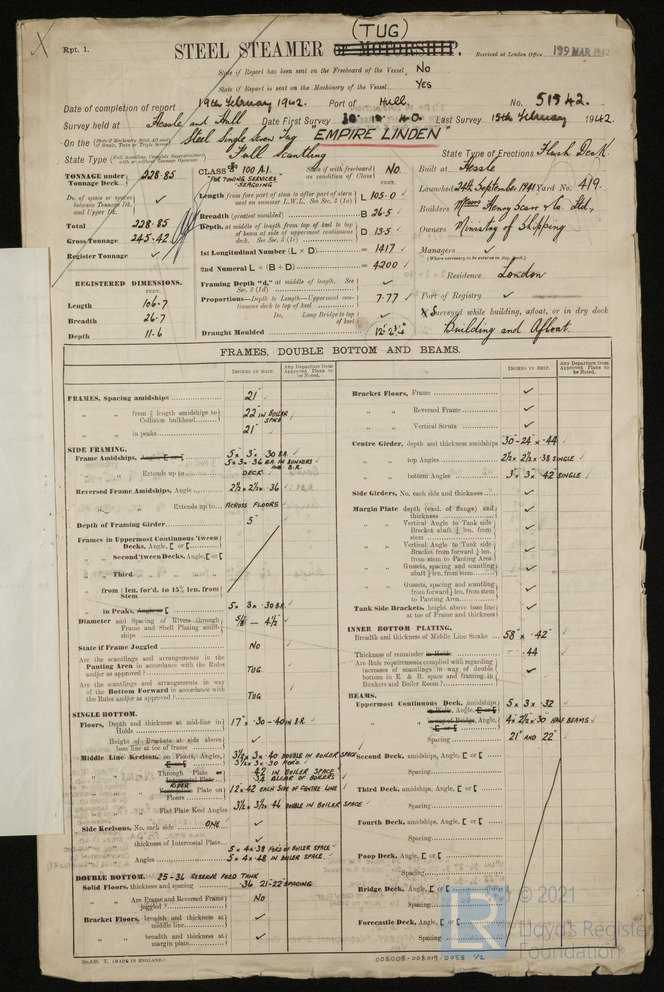 (TUG)
Rpt. 1.
STEEL STEAMER or MOTORSHIP.
Received at London Office 199 MAR 1942
State if Report has been sent on the Freeboard of the Vessel No
State if Report is sent on the Machinery of the Vessel Yes
Date of completion of report 19th February 1942. Port of Hull No. 51942.
Survey held at Hessle and Hull Date First Survey Last Survey 18th February 1942.
On the Steel Single Screw Tug "EMPIRE LINDEN"
State Type Full Scantling State Type of Erections Flush Deck
TONNAGE under Tonnage Deck 228.85
Do. of space or spaces between Tonnage Dk. and Upper Dk. ✓
Total 228.85
Gross Tonnage 245.42
Register Tonnage ✓
REGISTERED DIMENSIONS.
FEET.
Length 106.7
Breadth 26.7
Depth 11.6
CLASS 100 A1. State if (with freeboard) as condition of Class No
"FOR TOWING SERVICES"
FEET.
Length from fore part of stem to after part of stern post on summer L.W.L. See Sec. 3 (1a) L 105.0
Breadth (greatest moulded) B 26.5
Depth, at middle of length from top of keel to top of beam at side of uppermost continuous deck. See Sec. 3 (1c) D 13.5
1st Longitudinal Number (L × D) = 1417
2nd Numeral L × (B + D) = 4200
Framing Depth "d," at middle of length. See Sec. 3 (1d) ✓
Proportions—Depth to Length—Uppermost continuous deck to top of keel 7.77
Do. Long Bridge to top of keel
Draught Moulded
Built at Hessle
Launched 24th September 1941 Yard No. 419.
Builders Messrs Henry Scarr & Co. Ltd.,
Owners Ministry of Shipping
Managers ✓
(Where necessary to be entered in Reg. Book.)
Residence London
Port of Registry ✓
Surveyed while building, afloat, or in dry dock
Building and Afloat.
FRAMES, DOUBLE BOTTOM AND BEAMS.
INCHES IN SHIP.
Any Departure from Approved Plans to be Noted.
FRAMES, Spacing amidships 21"
" " from ¾ length amidships to Collision bulkhead 22" IN BOILER SPACE
" " in peaks 21"
SIDE FRAMING.
Frame Amidships, Angle E or [ 5 × 3 × .30 B.A.
5 × 3 × .36 B.A. IN BUNKERS AND B.R.
" " Extends up to DECK
Reversed Frame Amidships, Angle 2½ × 2½ × .36
" " Extends up to ACROSS FLOORS
Depth of Framing Girder 5"
Frames in Uppermost Continuous 'tween Decks, Angle, [ or [
" Second 'tween Decks, Angle, [ or [
" Third " " "
" from ¾ len. for'd. to 15% len. from Stem
" in Peaks, Angle or [ 5 × 3 × .30 B.A.
Diameter and Spacing of Rivets through Frame and Shell Plating amidships 5/8 — 4½"
State if Frame Joggled No
Are the scantlings and arrangements in the Panting Area in accordance with the Rules and/or as approved? TUG
Are the scantlings and arrangements in way of the Bottom Forward in accordance with the Rules and/or as approved? TUG
SINGLE BOTTOM.
Floors, Depth and thickness at mid-line in Holds 17" × .30 - .40 IN B.R.
Height of Brackets at side above base line at toe of frame ✓
Middle Line Keelson, on Floors, Angles, E or [ 3½ × 3 × .40 DOUBLE IN BOILER SPACE
3½ × 3 × .30 FOR'D.
" " Through Plate or Intercostal Plate .42 IN BOILER SPACE
.32 CLEAR OF BOILERS
" " RIDER Foundation Plate on Floors 12 × .42 EACH SIDE OF CENTRE LINE
" " Flat Plate Keel Angles 3½ × 3½ × .44 DOUBLE IN BOILER SPACE
Side Keelsons, No. each side ONE ✓
" " thickness of Intercostal Plate ✓
" " Angles 5 × 4 × .38 FOR'D OF BOILER SPACE
5 × 4 × .48 IN BOILER SPACE.
DOUBLE BOTTOM. 25-36 RESERVE FEED TANK
Solid Floors, thickness and spacing .36 21-22" SPACING
" " Are Frame and Reversed Frame joggled? No
Bracket Floors, breadth and thickness at middle line ✓
" " breadth and thickness at margin plate ✓
Bracket Floors, Frame ✓
" " Reversed Frame ✓
" " Vertical Struts ✓
Centre Girder, depth and thickness amidships 30-24" × .44
" " top Angles 2½ × 2½ × .38 SINGLE
" " bottom Angles 3 × 3 × .42 SINGLE
Side Girders, No. each side and thickness ✓
Margin Plate depth (excl. of flange) and thickness ✓
" " Vertical Angle to Tank side Bracket abaft ¼ len. from stem ✓
" " Vertical Angle to Tank side Bracket from forward ¼ len. from stem to Panting Area ✓
" " Gussets, spacing and scantling abaft ¼ len. from stem ✓
" " Gussets, spacing and scantling from forward ¼ len. from stem to Panting Area ✓
Tank Side Brackets, height above base line at toe of Frame and thickness ✓
INNER BOTTOM PLATING.
Breadth and thickness of Middle Line Strake 58" × .42"
Thickness of remainder in Holds .44
Are Rule requirements complied with regarding increase of scantlings in way of double bottom in E. & B. space and framing in Bunkers and Boiler Room? ✓
BEAMS.
Uppermost Continuous Deck, amidships in Wells, Angle, [ or [ 5 × 3 × .32
" " in way of Bridge, Angle, [ or [ 4 × 2½ × .30 HALF BEAMS
Spacing 21" AND 22"
Second Deck, amidships, Angle, [ or [
Spacing
Third Deck, amidships, Angle, [ or [
Spacing
Fourth Deck, amidships, Angle, [ or [
Spacing
Poop Deck, Angle, [ or [
Spacing
Bridge Deck, Angle, [ or [
Spacing
Forecastle Deck, Angle, [ or [
Spacing
(MADE IN ENGLAND.)
008008-008019-0058 1/2
© 2021
Lloyd's Register
Foundation